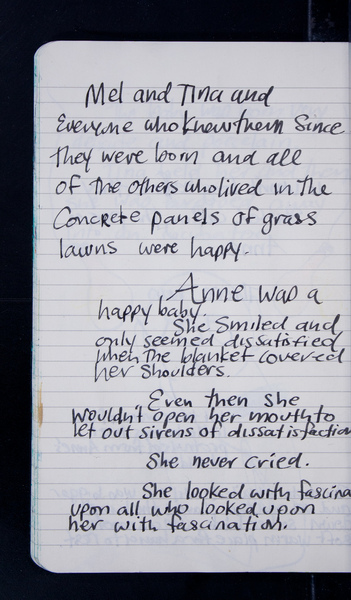 Mel and Tina and
Everyone who knew them since
they were born and all
of the others who lived in the
Concrete panels of grass
lawns were happy.
Anne was a
happy baby.
She smiled and
only seemed dissatisfied
when the blanket covered
her shoulders.
Even then she
wouldn't open her mouth to
let out sirens of dissatisfaction
She never cried.
She looked with fascina
upon all who looked upon
her with fascination.